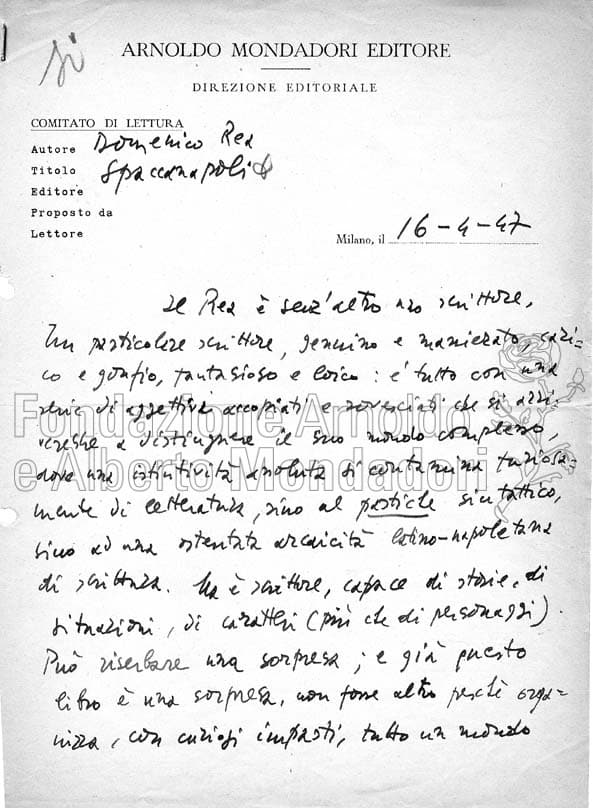 sì
ARNOLDO MONDADORI EDITORE
DIREZIONE EDITORIALE
COMITATO DI LETTURA
Autore Domenico Rea
Titolo Spaccanapoli
Editore
Proposto da
Lettore
Milano, il 16-4-47
Il Rea è senz'altro uno scrittore.
Un particolare scrittore, genuino e manierato, cari-
co e gonfio, fantasioso e loico: è tutto con una
serie di aggettivi accopiati e rovesciati che si arri-
verebbe a distinguere il suo mondo complesso,
dove una istintività assoluta si contamina furiosa-
mente di letteratura, sino al pastiche sintattico,
sino ad una ostentata arcaicità latino-napoletana
di scrittura. Ma è scrittore, capace di storie, di
situazioni, di caratteri (più che di personaggi).
Può riserbare una sorpresa; e già questo
libro è una sorpresa, non fosse altro perché orga-
nizza, con curiosi impasti, tutto un mondo
Fondazione Arnoldo
e Alberto Mondadori